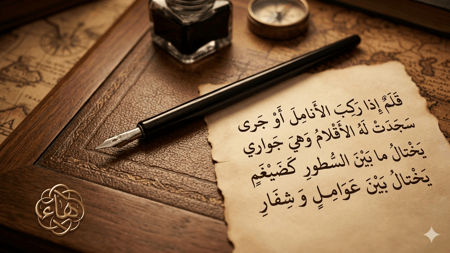 قَلَمٌ إِذَا رَكِبَ الأَنَامِلَ أَوْ جَرَى
سَجَدَتْ لَهُ الأَقْلَامُ وَهِيَ جَوَارِي
يَخْتَالُ مَا بَيْنَ السُّطُورِ كَضَيْغَمٍ
يَخْتَالُ بَيْنَ عَوَامِلٍ وَ شِفَارِ
هاء